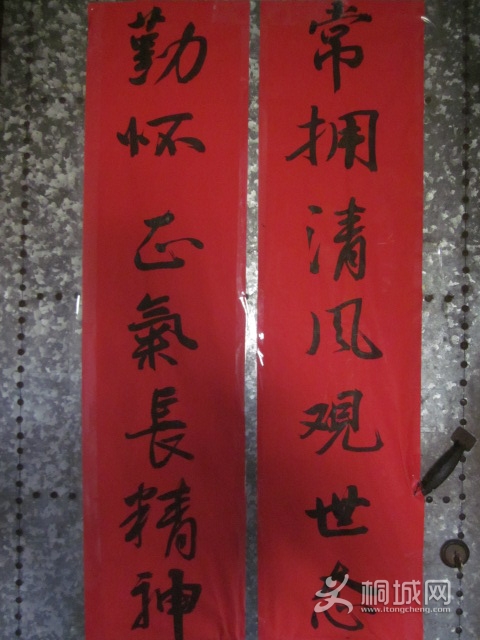 常拥清风观世态
勤怀正氣長精神
桐城网
www.itongcheng.com